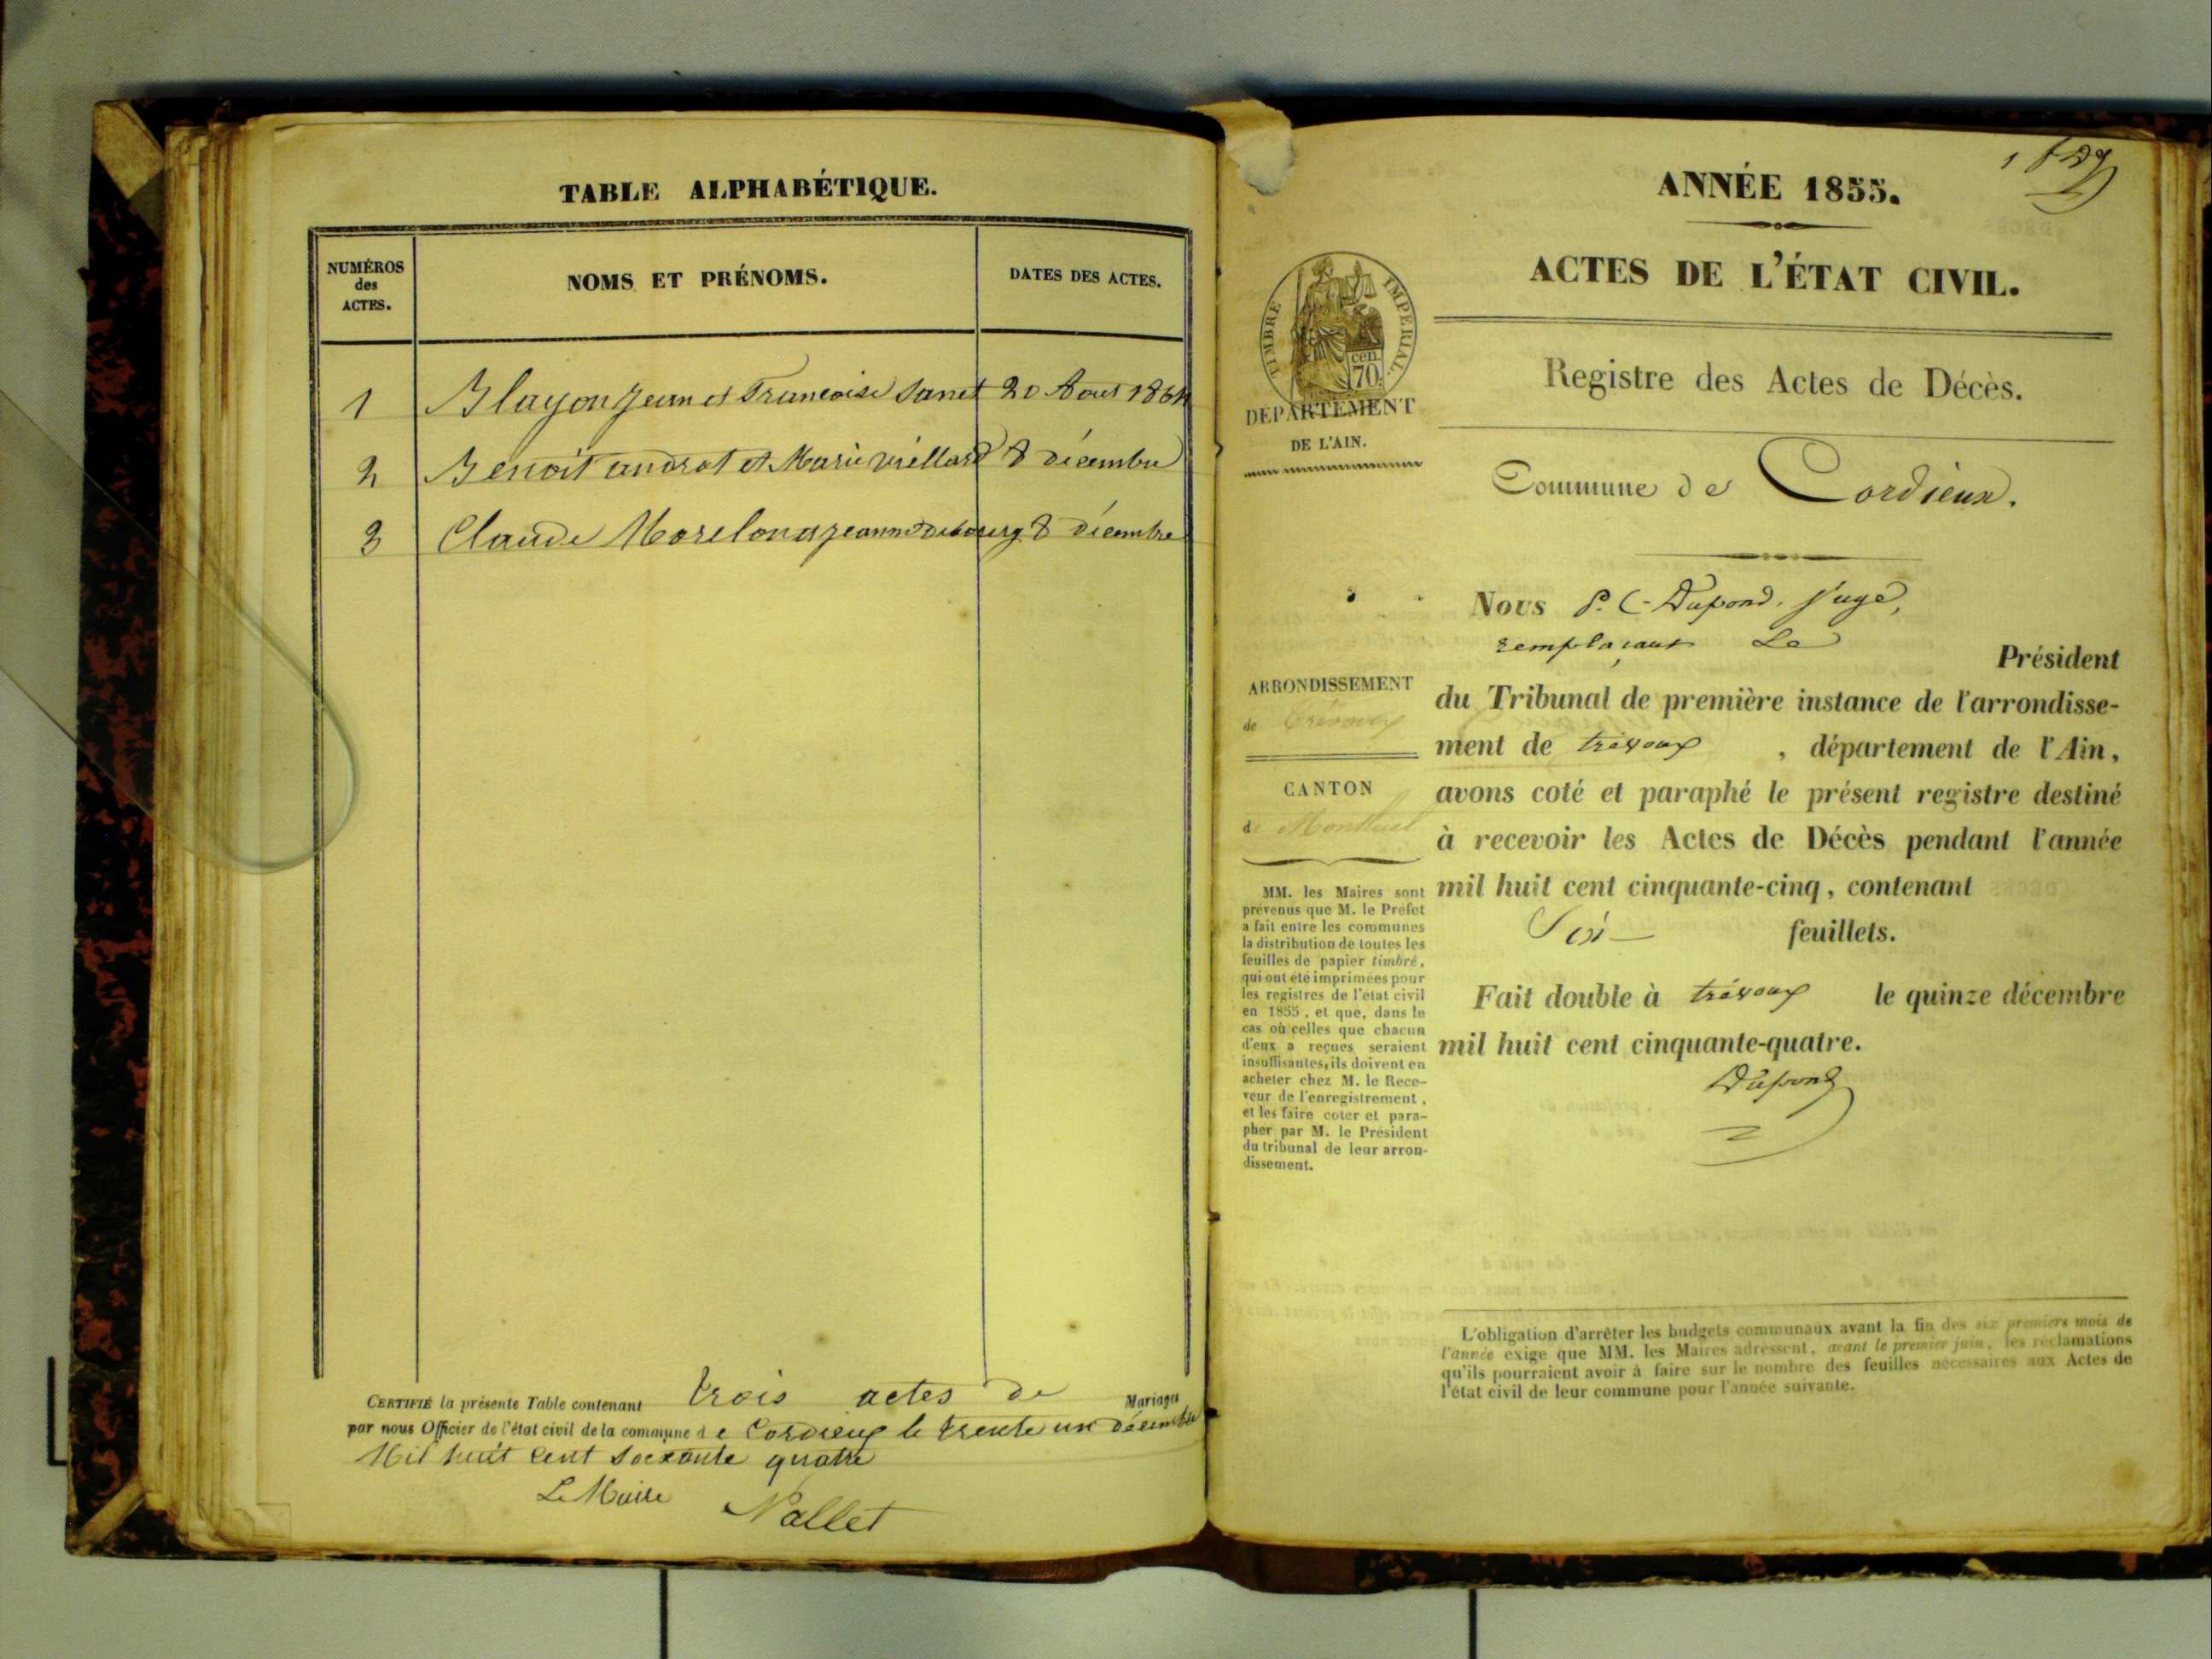 TABLE ALPHABÉTIQUE.
NUMÉROS
des
ACTES.
NOMS ET PRÉNOMS.
DATES DES ACTES.
1 Blayon Jean et Francoise Sanet 20 Aout 1864
2 Benoit andrat et Marie viellard 8 décembre
3 Claude Morelon a jeanne debourg 8 décembre
CERTIFIÉ la présente Table contenant trois actes de Mariages
par nous Officier de l'état civil de la commune de Cordieux le trente un décembre
Mil huit cent soixante quatre
Le Maire Nallet
ANNÉE 1855.
ACTES DE L'ÉTAT CIVIL.
TIMBRE IMPERIAL.
cen.
70.
DÉPARTEMENT
DE L'AIN.
Registre des Actes de Décès.
Commune de Cordieux.
Nous P. C. Dupond, Juge,
remplaçant Le
Président
du Tribunal de première instance de l'arrondisse-
ment de trévoux, département de l'Ain,
avons coté et paraphé le présent registre destiné
à recevoir les Actes de Décès pendant l'année
mil huit cent cinquante-cinq, contenant
Six feuillets.
Fait double à trévoux le quinze décembre
mil huit cent cinquante-quatre.
Dupond
ARRONDISSEMENT
de Trévoux
CANTON
de Montluel
MM. les Maires sont
prévenus que M. le Préfet
a fait entre les communes
la distribution de toutes les
feuilles de papier timbré,
qui ont été imprimées pour
les registres de l'état civil
en 1855, et que, dans le
cas où celles que chacun
d'eux a reçues seraient
insuffisantes, ils doivent en
acheter chez M. le Rece-
veur de l'enregistrement,
et les faire coter et para-
pher par M. le Président
du tribunal de leur arron-
dissement.
L'obligation d'arrêter les budgets communaux avant la fin des six premiers mois de
l'année exige que MM. les Maires adressent, avant le premier juin, les réclamations
qu'ils pourraient avoir à faire sur le nombre des feuilles nécessaires aux Actes de
l'état civil de leur commune pour l'année suivante.